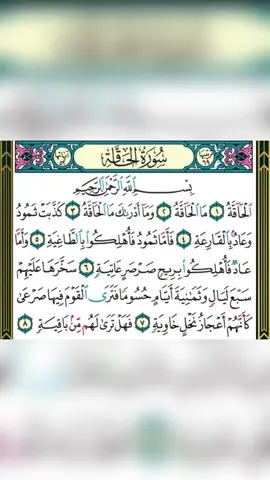 سُورَةُ الْحَاقَّةِ
بِسْمِ اللَّهِ الرَّحْمَٰنِ الرَّحِيمِ
الْحَاقَّةُ ١ مَا الْحَاقَّةُ ٢ وَمَا أَدْرَىٰكَ مَا الْحَاقَّةُ ٣ كَذَّبَتْ ثَمُودُ
وَعَادٌۢ بِالْقَارِعَةِ ٤ فَأَمَّا ثَمُودُ فَأُهْلِكُوا۟ بِالطَّاغِيَةِ ٥ وَأَمَّا
عَادٌ فَأُهْلِكُوا۟ بِرِيحٍ صَرْصَرٍ عَاتِيَةٍ ٦ سَخَّرَهَا عَلَيْهِمْ
سَبْعَ لَيَالٍ وَثَمَٰنِيَةَ أَيَّامٍ حُسُومًا فَتَرَى الْقَوْمَ فِيهَا صَرْعَىٰ
كَأَنَّهُمْ أَعْجَازُ نَخْلٍ خَاوِيَةٍ ٧ فَهَلْ تَرَىٰ لَهُم مِّنۢ بَاقِيَةٍ ٨